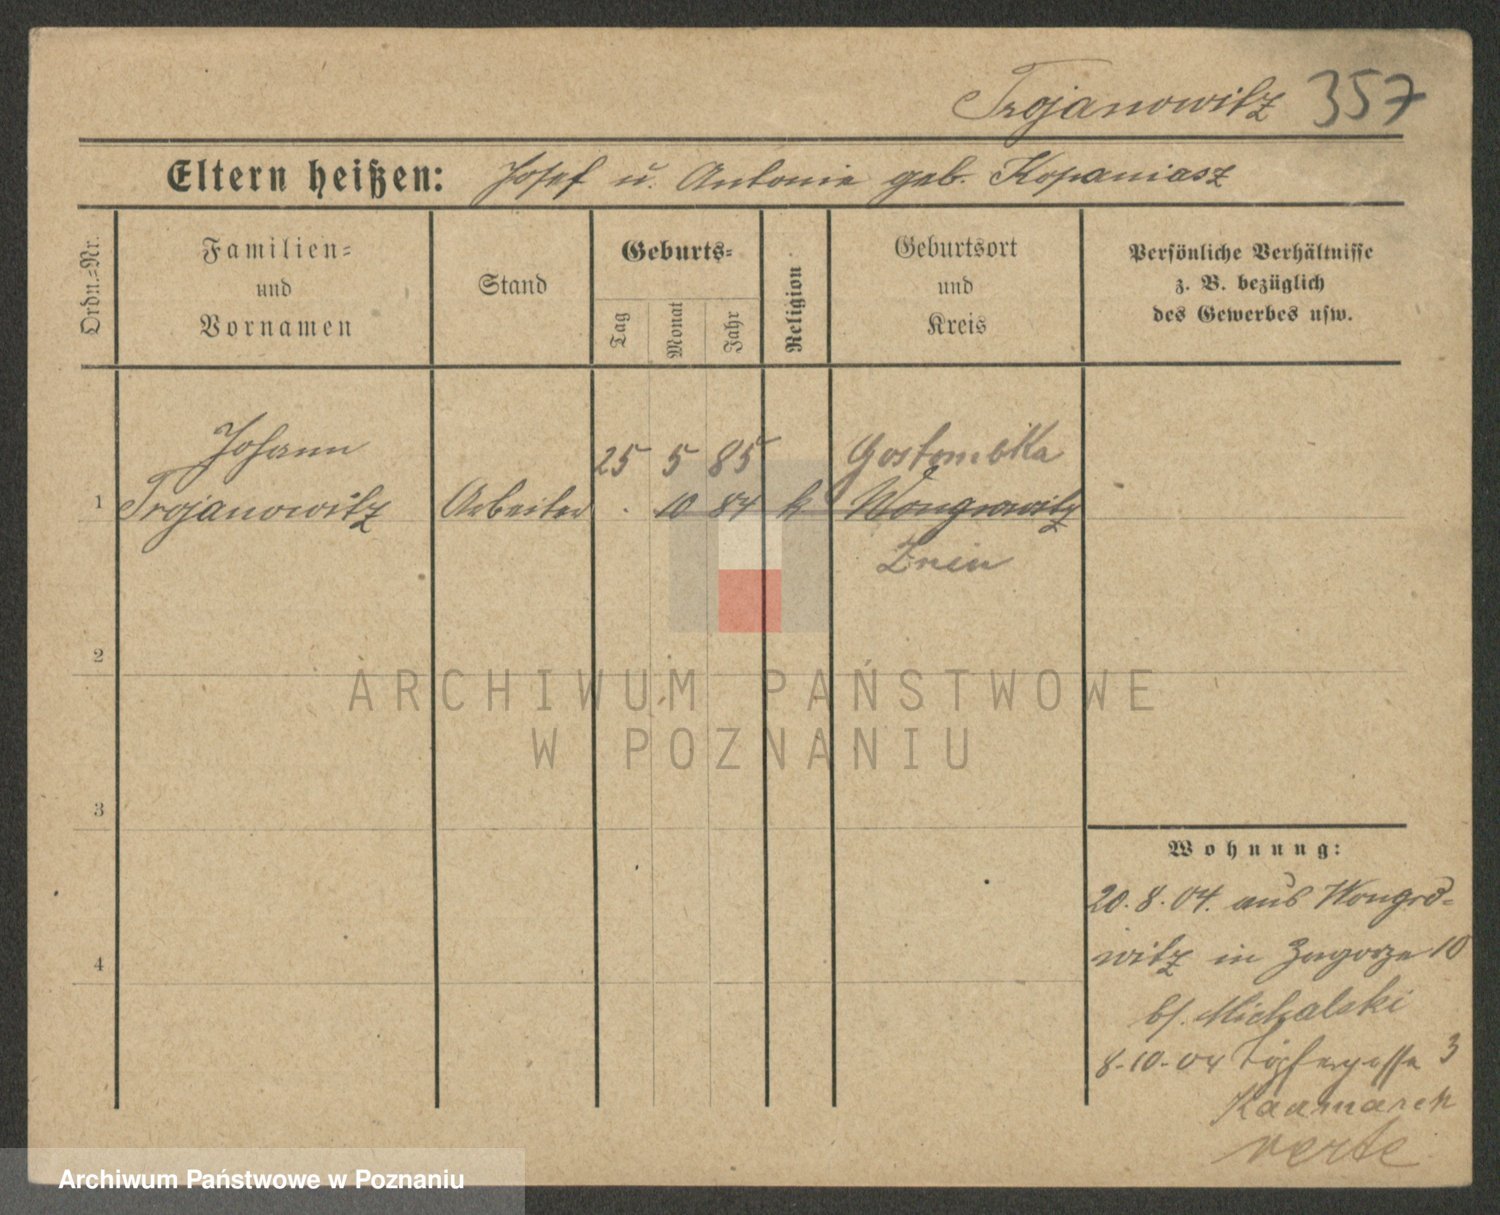 Trojanowitz 357
Eltern heißen: Josef u. Antonie geb. Kopaniasz
Ordn.-Nr.
Familien-
und
Vornamen
Stand
Geburts-
Tag
Monat
Jahr
Religion
Geburtsort
und
Kreis
Persönliche Verhältnisse
z. B. bezüglich
des Gewerbes usw.
Johann
25 5 85
Gostombka
1 Trojanowitz Arbeiter . 10 84 k Wongrowitz
Znin
2
3
4
Wohnung:
20.8.04. aus Wongro-
witz in Zagorze 10
b/. Michalski
8-10-04 Töpfergasse 3
Kaczmarek
verte
ARCHIWUM PAŃSTWOWE
W POZNANIU
Archiwum Państwowe w Poznaniu